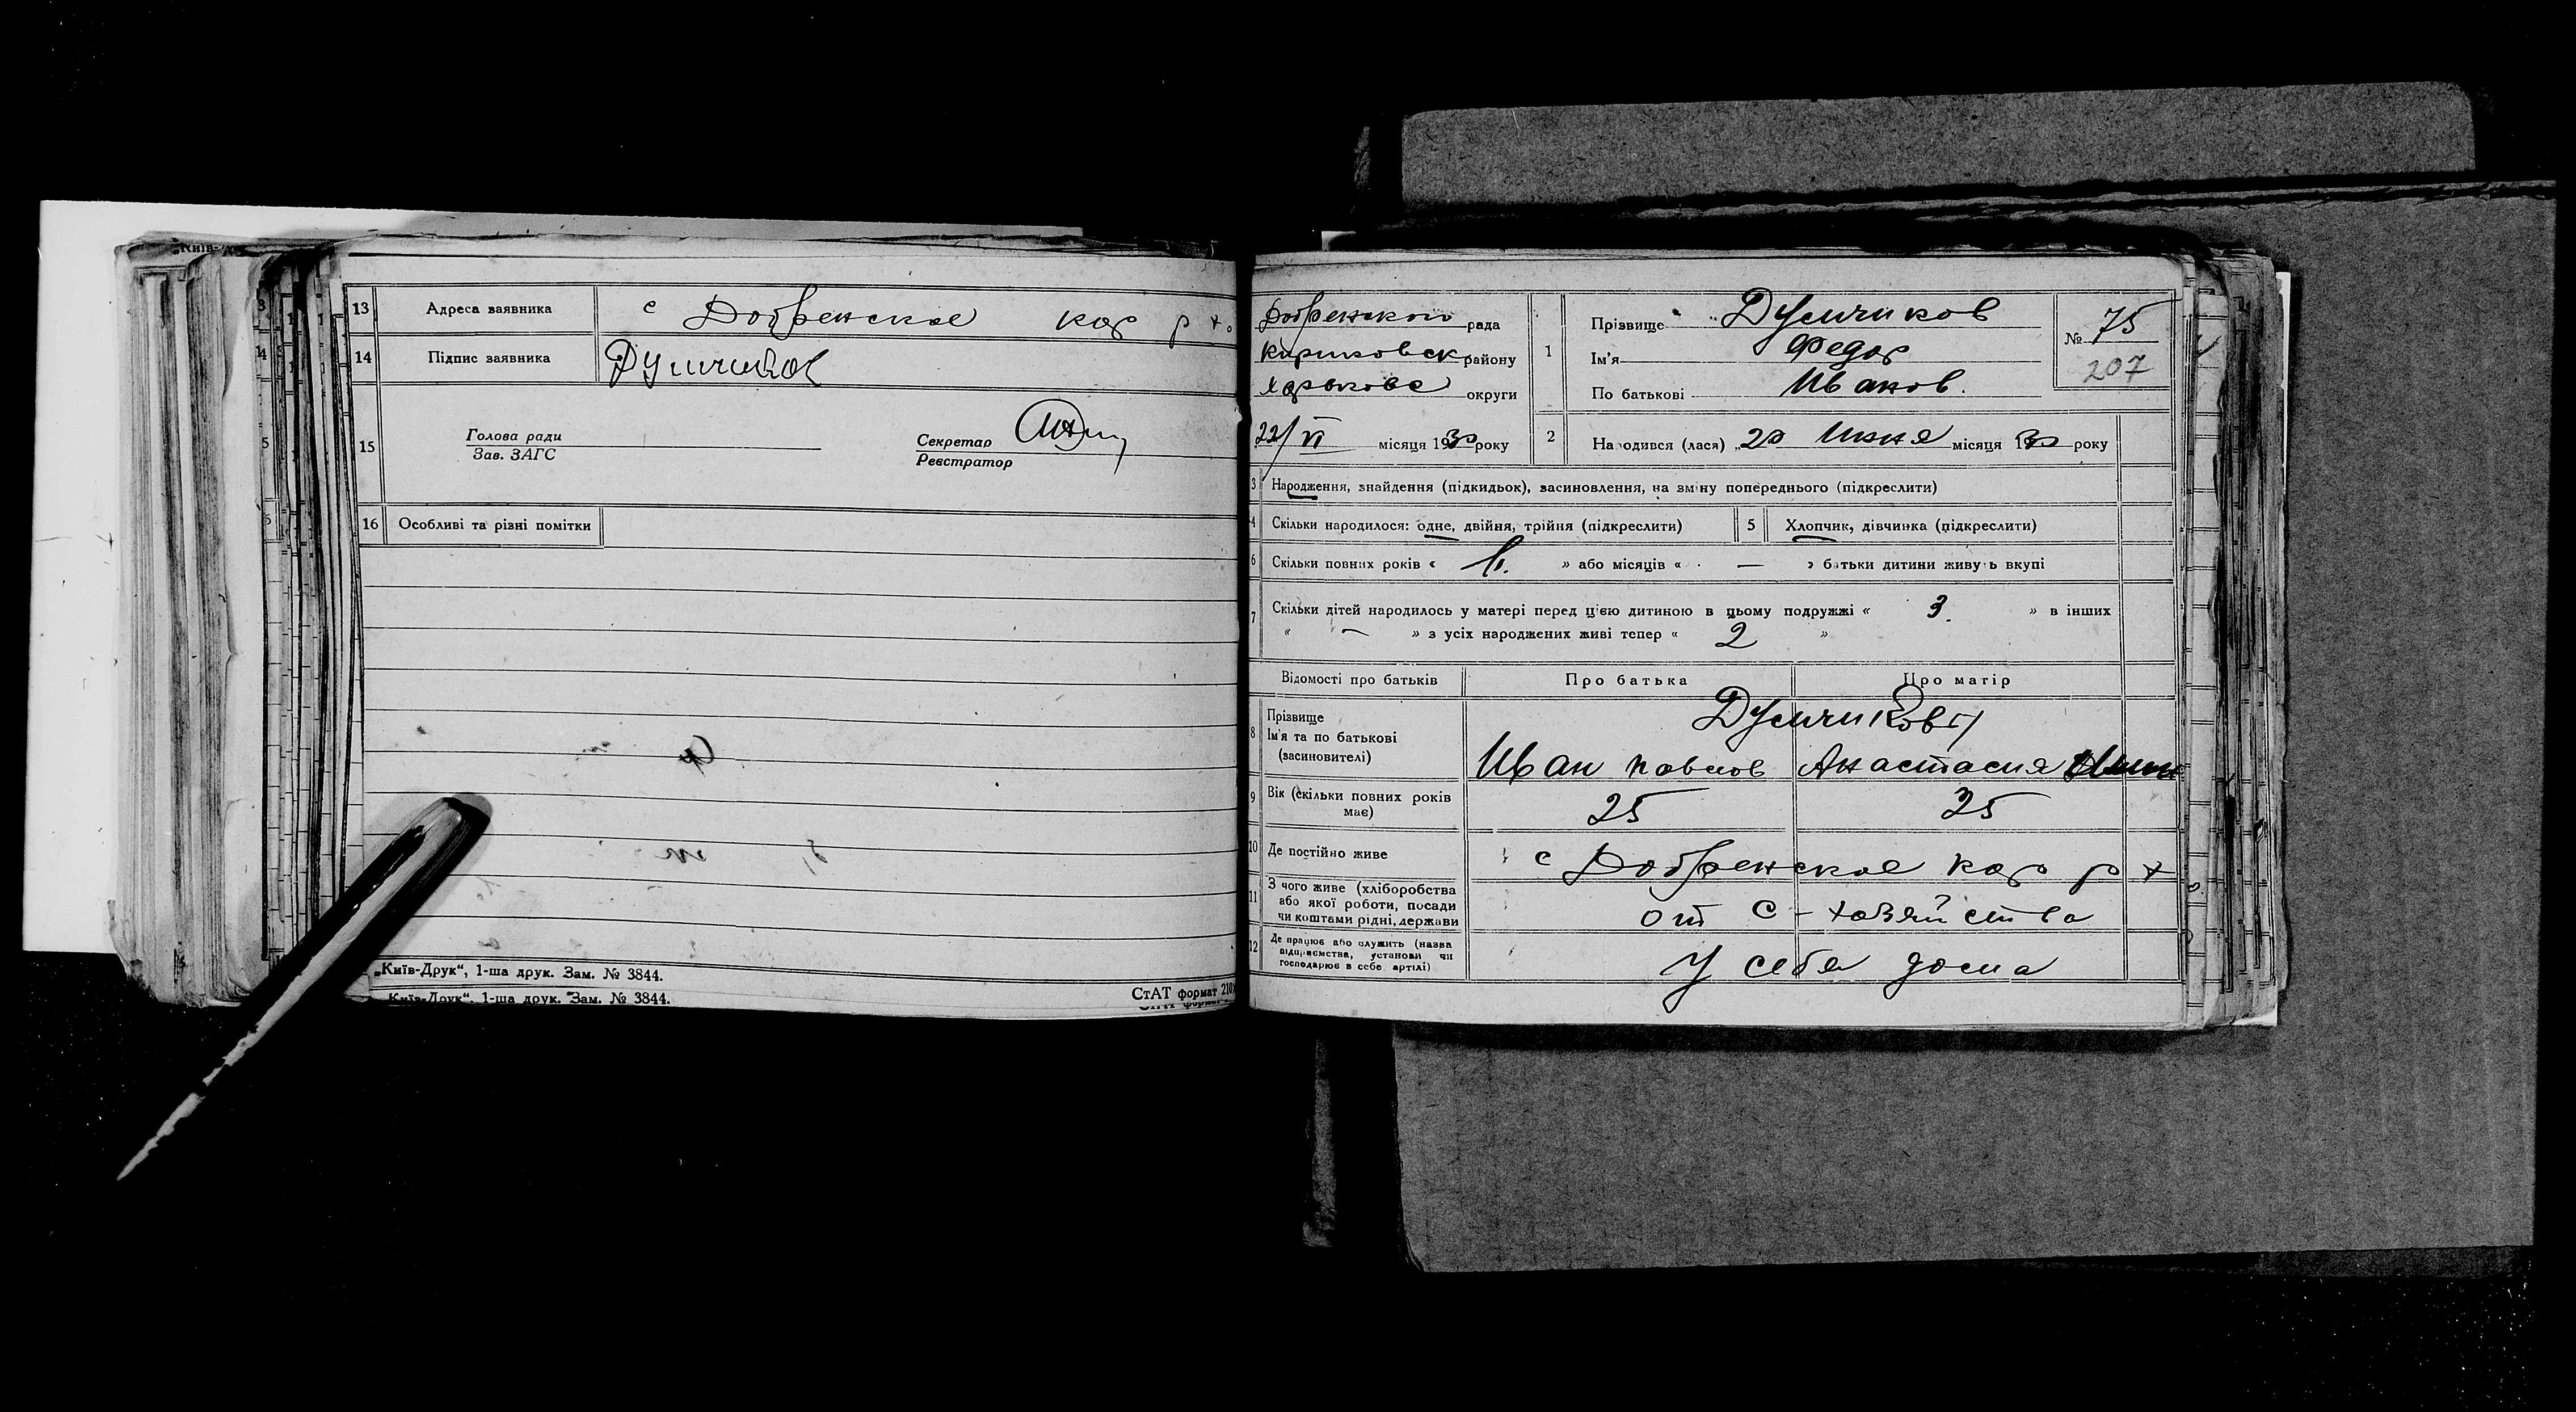 13 Адреса заявника с Добренькое кор р х о
14 Підпис заявника Думчиков
15 Голова ради Секретар
Зав. ЗАГС Реєстратор
16 Особливі та різні помітки
„Київ-Друк“, 1-ша друк. Зам. № 3844. СтАТ формат 210
„Київ-Друк“, 1-ша друк. Зам. № 3844.
Добренского рада
района району
округи
22/VI місяця 1930 року
1 Прізвище Думчиков
Ім'я Федор
По батькові Иванов.
№ 75
207
2 Народився (лася) „20 Июня місяця 1930 року
3 Народження, знайдення (підкидьок), засиновлення, на зміну попереднього (підкреслити)
4 Скільки народилося: одне, двійня, трійня (підкреслити) 5 Хлопчик, дівчинка (підкреслити)
6 Скільки повних років « » або місяців « — » батьки дитини живуть вкупі
7 Скільки дітей народилось у матері перед цією дитиною в цьому подружжі « 3. » в інших
« — » з усіх народжених живі тепер « 2 »
Відомості про батьків Про батька Про матір
8 Прізвище Думчиковы
Ім'я та по батькові
(засиновителі) Иван Павлов Анастасия
9 Вік (скільки повних років має) 25 25
10 Де постійно живе с Добренькое кор р х о
11 З чого живе (хліборобства
або якої роботи, посади
чи коштами рідні, держави от с-хозяйства
12 Де працює або служить (назва
підприємства, установи чи
господарює в себе артілі) У себя дома